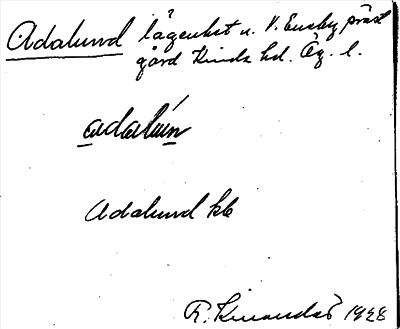 Adalund lägenhet u. V. Eneby präst
gård Kinda hd. Ög. l.
adalún
Adalund kb
R. 1928